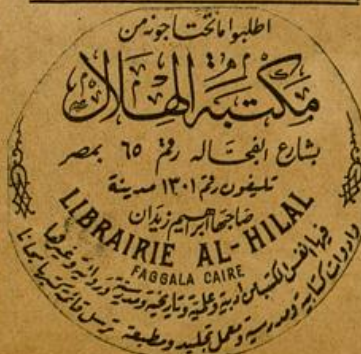 اطلبوا ما تحتاجونه من
مكتبة الهلال
بشارع الفجاله رقم ٦٥ بمصر
تليفون رقم ١٣٠١ مدينة
صاحبها ابراهيم زيدان
LIBRAIRIE AL-HILAL
FAGGALA CAIRE
فيها انفس الكتب من ادبية وعلمية وتاريخية ومدرسية وروائية وغيرها
وادوات كتابية ومدرسية ومعمل تجليد ومطبعة ترسل قائمة كتبها مجانا